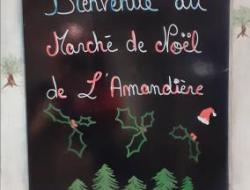 Bienvenue au
Marché de Noël
de L'Amandière